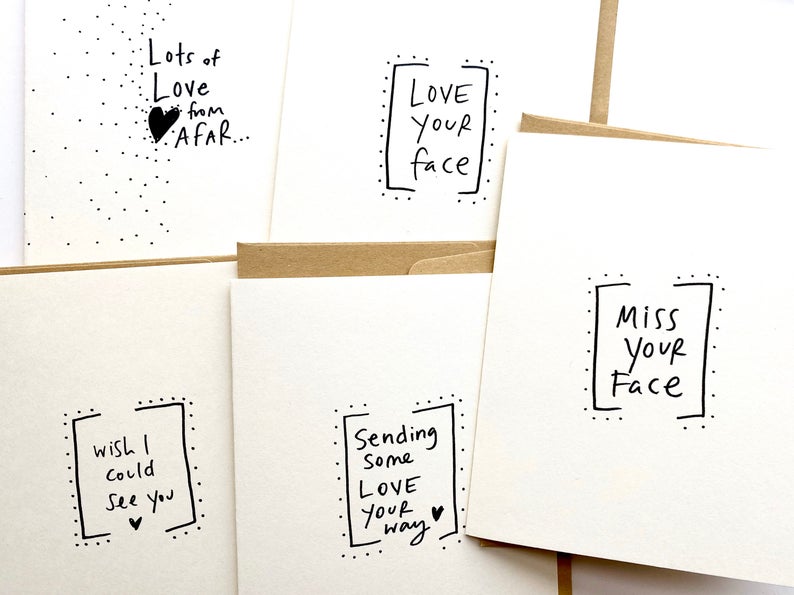 Lots of
Love
from
AFAR...
LOVE
YOUR
face
Miss
YOUR
Face
wish I
could
see you
Sending
some
LOVE
YOUR
way